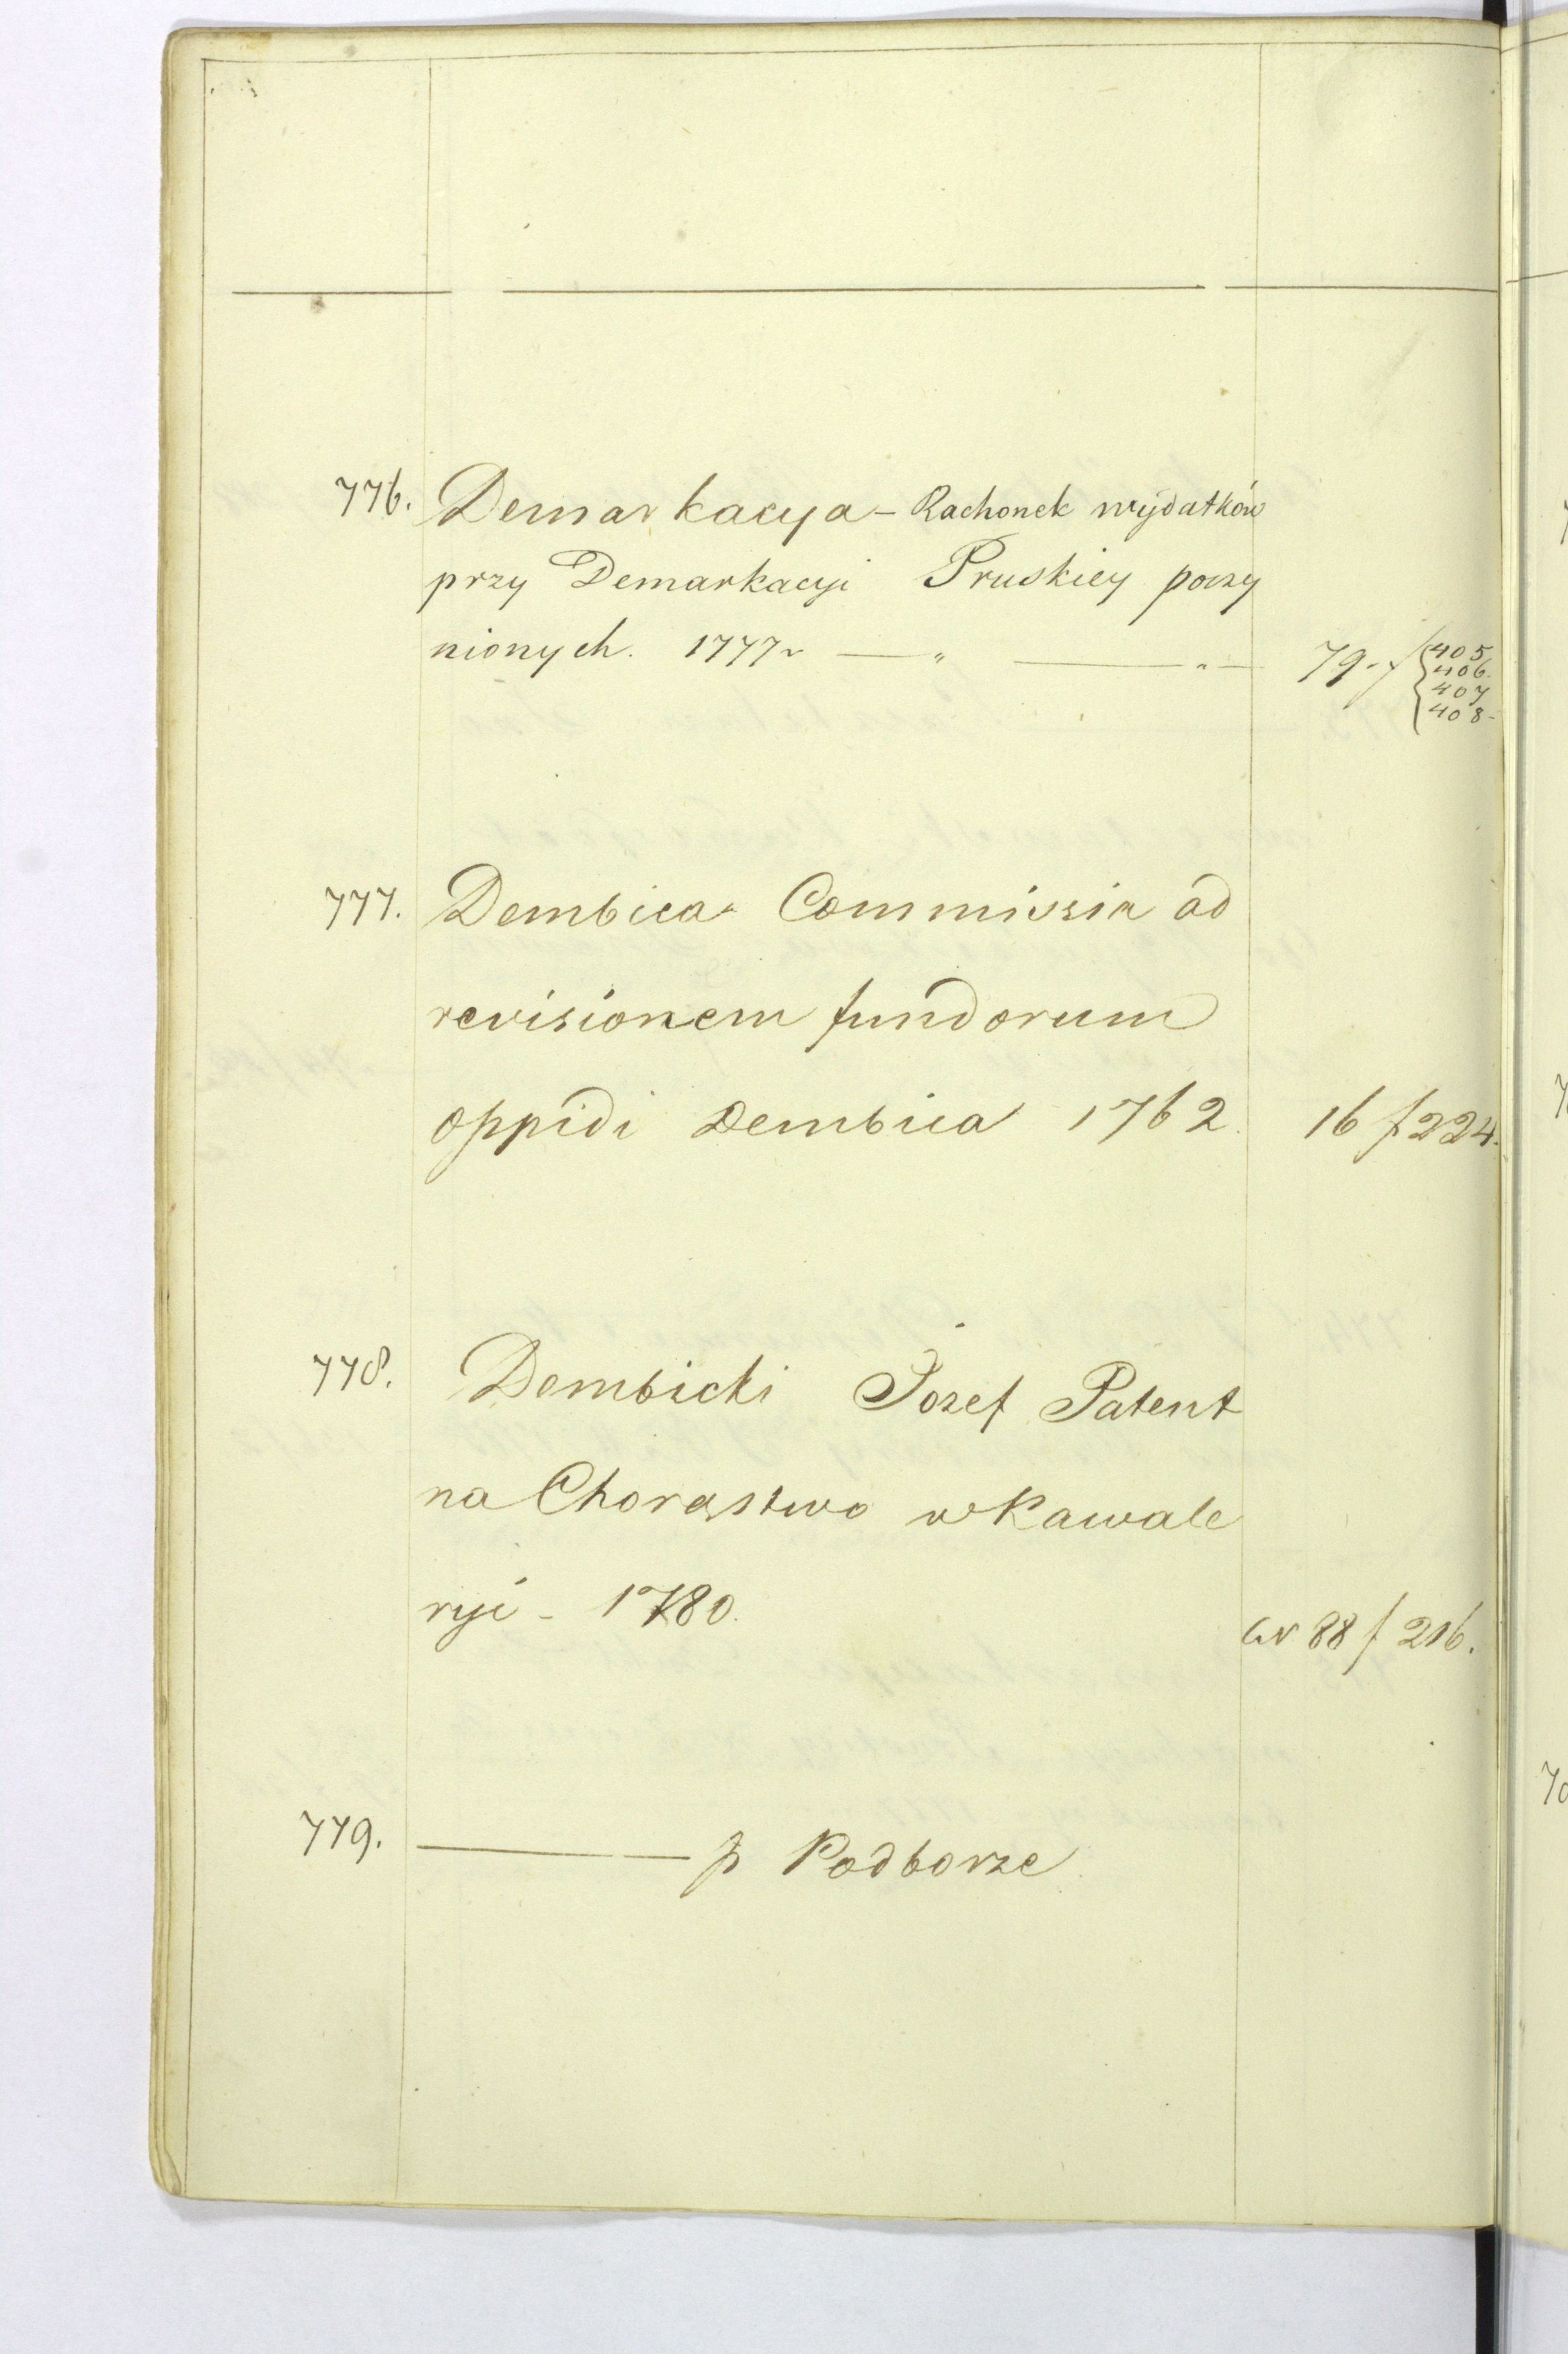 776. Demarkacya - Rachonek wydatków
przy Demarkacyi Pruskiey poczy
nionych. 1777r — " — " — 79. f 405
406.
407
408-
777. Dembica. Commissia ad
revisionem fundorum
oppidi Dembica 1762. 16 f 224.
778. Dembicki Jozef Patent
na Chorąstwo w Kawale
ryi - 1780. 88 f 216.
779. — p Podborze